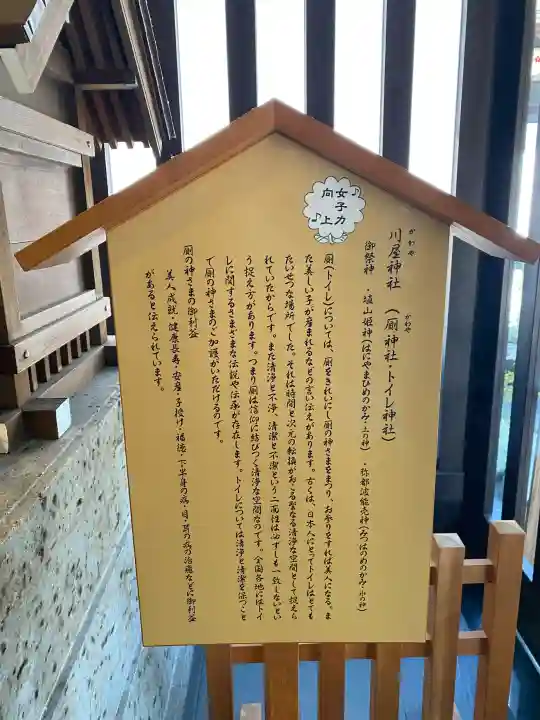 女子力
向上
川屋神社 (厠神社・トイレ神社)
かわや
かわや
御祭神 ・埴山姫神(はにやまひめのかみ・土の神) ・弥都波能売神(みつはのめのかみ・水の神)
厠(トイレ)については、「厠をきれいにし厠の神さまをまつり、お参りをすれば美人になる。ま
た美しい子が産まれるなどの言い伝えがあります。古くは、日本人にとってトイレはとても
たいせつな場所でした。それは時間と次元の転換がおこる聖なる清浄な空間として捉えら
れていたからです。また清浄と不浄、清潔と不潔という二面性は必ずしも一致しないとい
う捉え方があります。つまり厠は信仰に結びつく清浄な空間なのです。全国各地にはトイ
レに関するさまざまな伝説や伝承が存在します。トイレについては清浄と清潔を保つこと
で厠の神さまのご加護がいただけるのです。
厠の神さまの御利益
美人成就・健康長寿・安産・子授け・福徳・下半身の病・目・耳の病の治癒などに御利益
があると伝えられています。